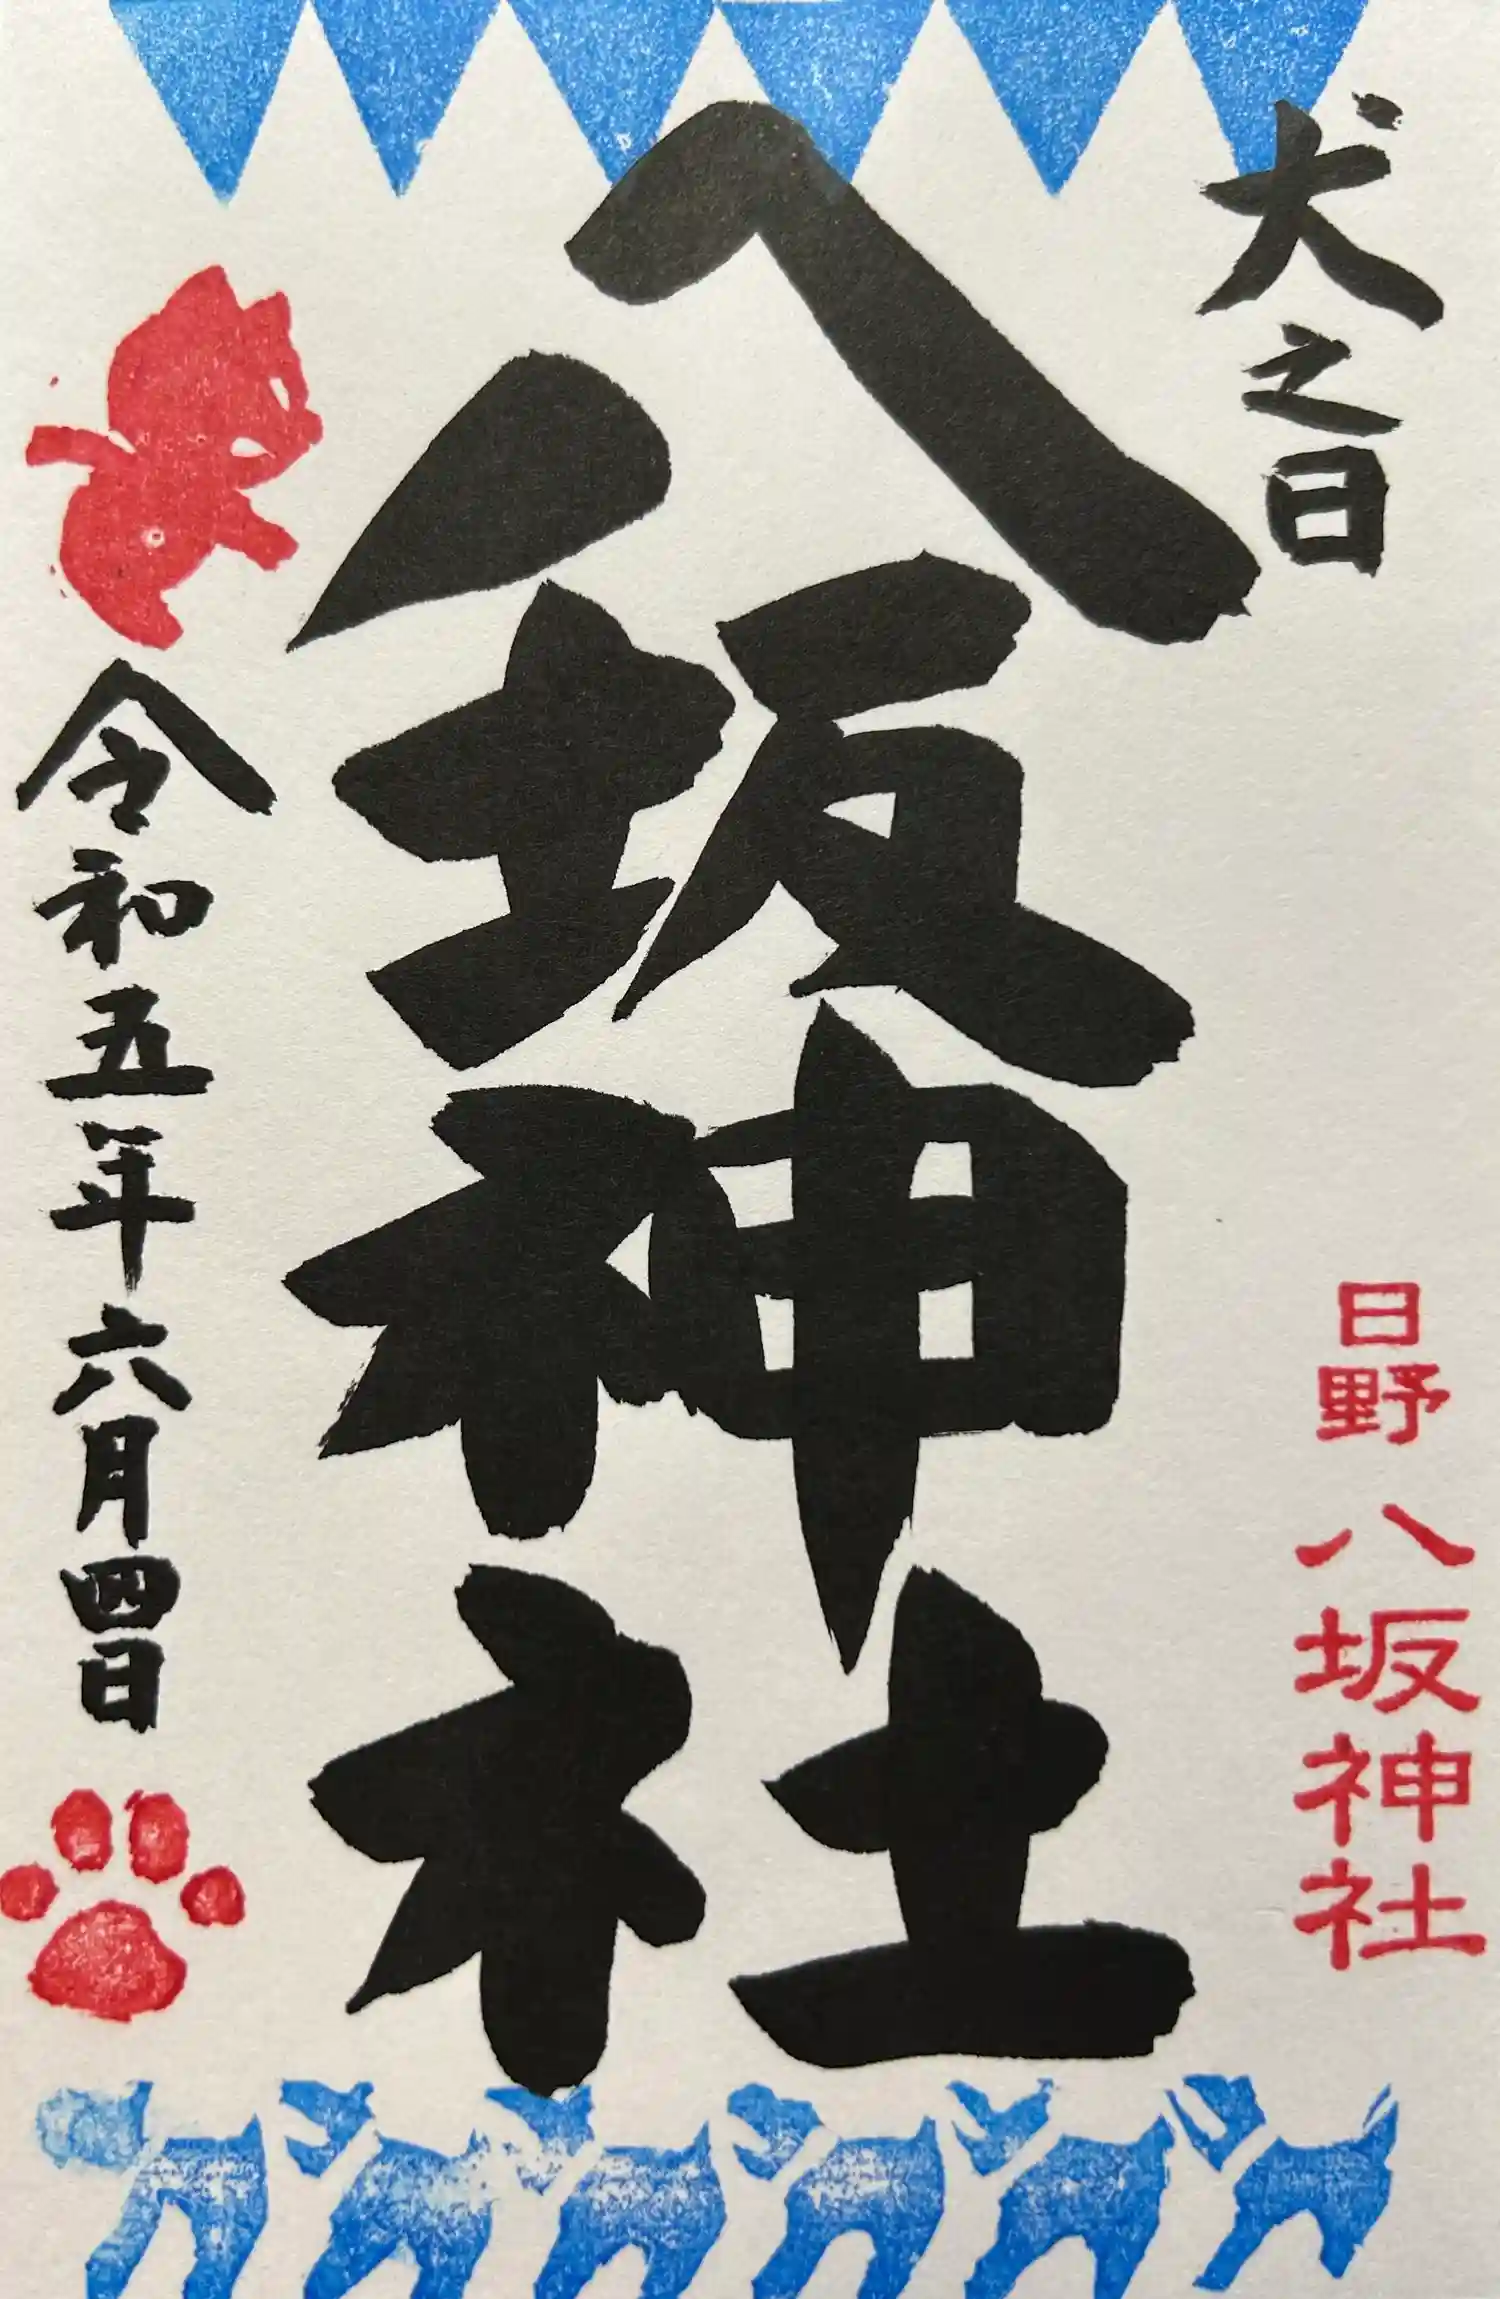 犬之日
日野 八坂神社
八坂神社
令和五年六月四日